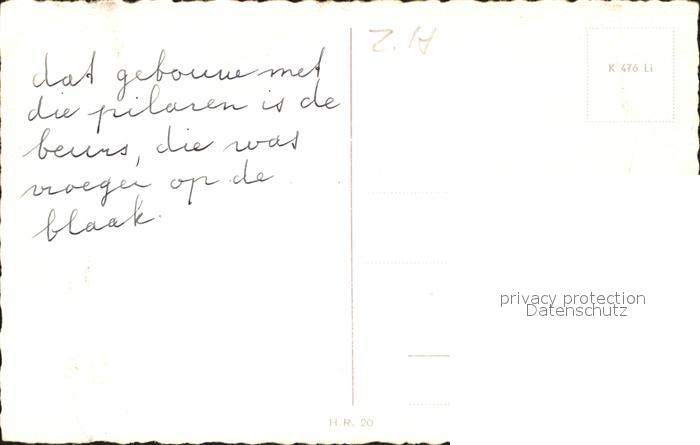 Z.H
K 476 Li
dat gebouw met
die pilaren is de
beurs, die was
vroeger op de
blaak.
privacy protection
Datenschutz
H.R. 20